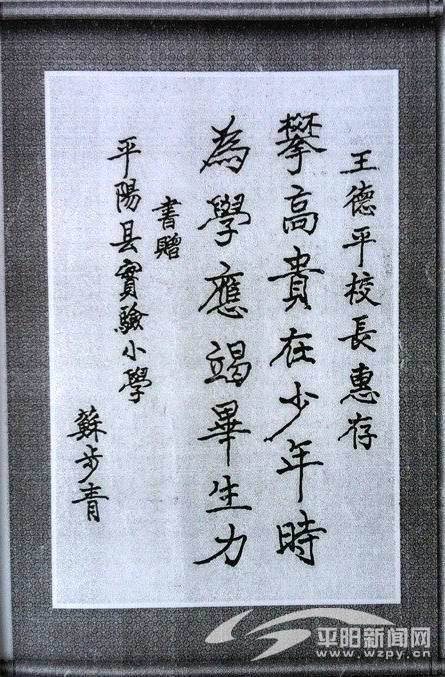 王德平校長惠存
攀高貴在少年時
為學應竭畢生力
書贈
平陽县實驗小學
蘇步青
平阳新闻网
www.wzpy.cn